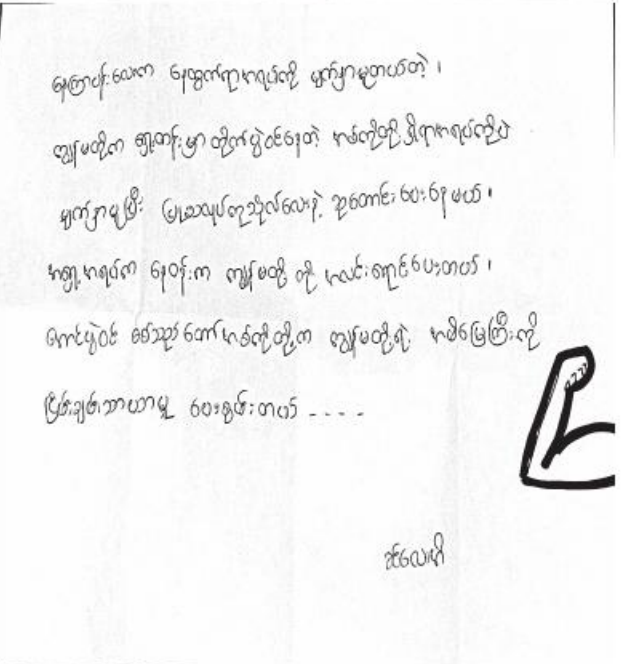 နေကြာပန်းလေးက နေထွက်ရာအရပ်ကို မျက်နှာမူတယ်တဲ့ ၊
ကျွန်မတို့က ရှေ့တန်းမှာ တိုက်ပွဲဝင်နေတဲ့ အစ်ကိုတို့ ရှိရာအရပ်ကိုပဲ
မျက်နှာမူပြီး ပြုံးသလုပ်တူသိုလ်လေးနဲ့ ဆုတောင်းပေးနေမယ် ။
အရှေ့အရပ်က နေဝန်းက ကျွန်မတို့ ကို အလင်းရောင်ပေးတယ် ၊
တောင်ပွဲဝင် စစ်သည်တော်အစ်ကိုတို့က ကျွန်မတို့ရဲ့ အမိမြေကြီးကို
ငြိမ်းချမ်းသာယာမှု ပေးစွမ်းတယ် ----